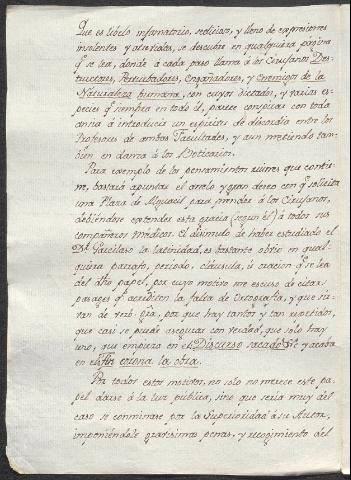 Que es libelo infamatorio, sedicioso, y lleno de expresiones
insolentes y atrevidas, se descubre en qualquiera página
q.e se lea, donde à cada paso llama à los Cirujanos Des-
tructores, Perturbadores, Engañadores, y Enemigos de la
Naturaleza humana, con cuyos dictados, y varias es-
pecies q.e siembra en todo él, parece conspirar con toda
ansia à introducir un espiritu de discordia entre los
Profesores de ambas Facultades, y aun metiendo tam-
bien en danza à los Boticarios.
Para exemplo de los pensamientos ruines que contie-
ne, bastará apuntar el anelo y gran deseo con q.e solicita
una Plaza de Alguacil para prender à los Cirujanos,
debiendose extender esta gracia (segun él) à todos sus
compañeros Médicos. El disimulo de haber estudiado el
D.r Garcilaso la latinidad, es bastante obvio en qual-
quiera parrafo, periodo, cláusula, ù oracion q.e se lea
del dho papel, por cuyo motivo me escuso de citar
pasages q.e acrediten la falta de Ortografía, y que sir-
van de por que hay tantos y tan repetidos,
que casi se puede asegurar con verdad, que solo hay
uno, que empieza en el Discurso sacado y acaba
en el Fin corona la obra.
Por todos estos motivos, no solo no merece este pa-
pel darse à la luz publica, sino que seria muy del
caso se conminase por la Superioridad à su Autor,
imponiéndole gravisimas penas, y recogimiento del